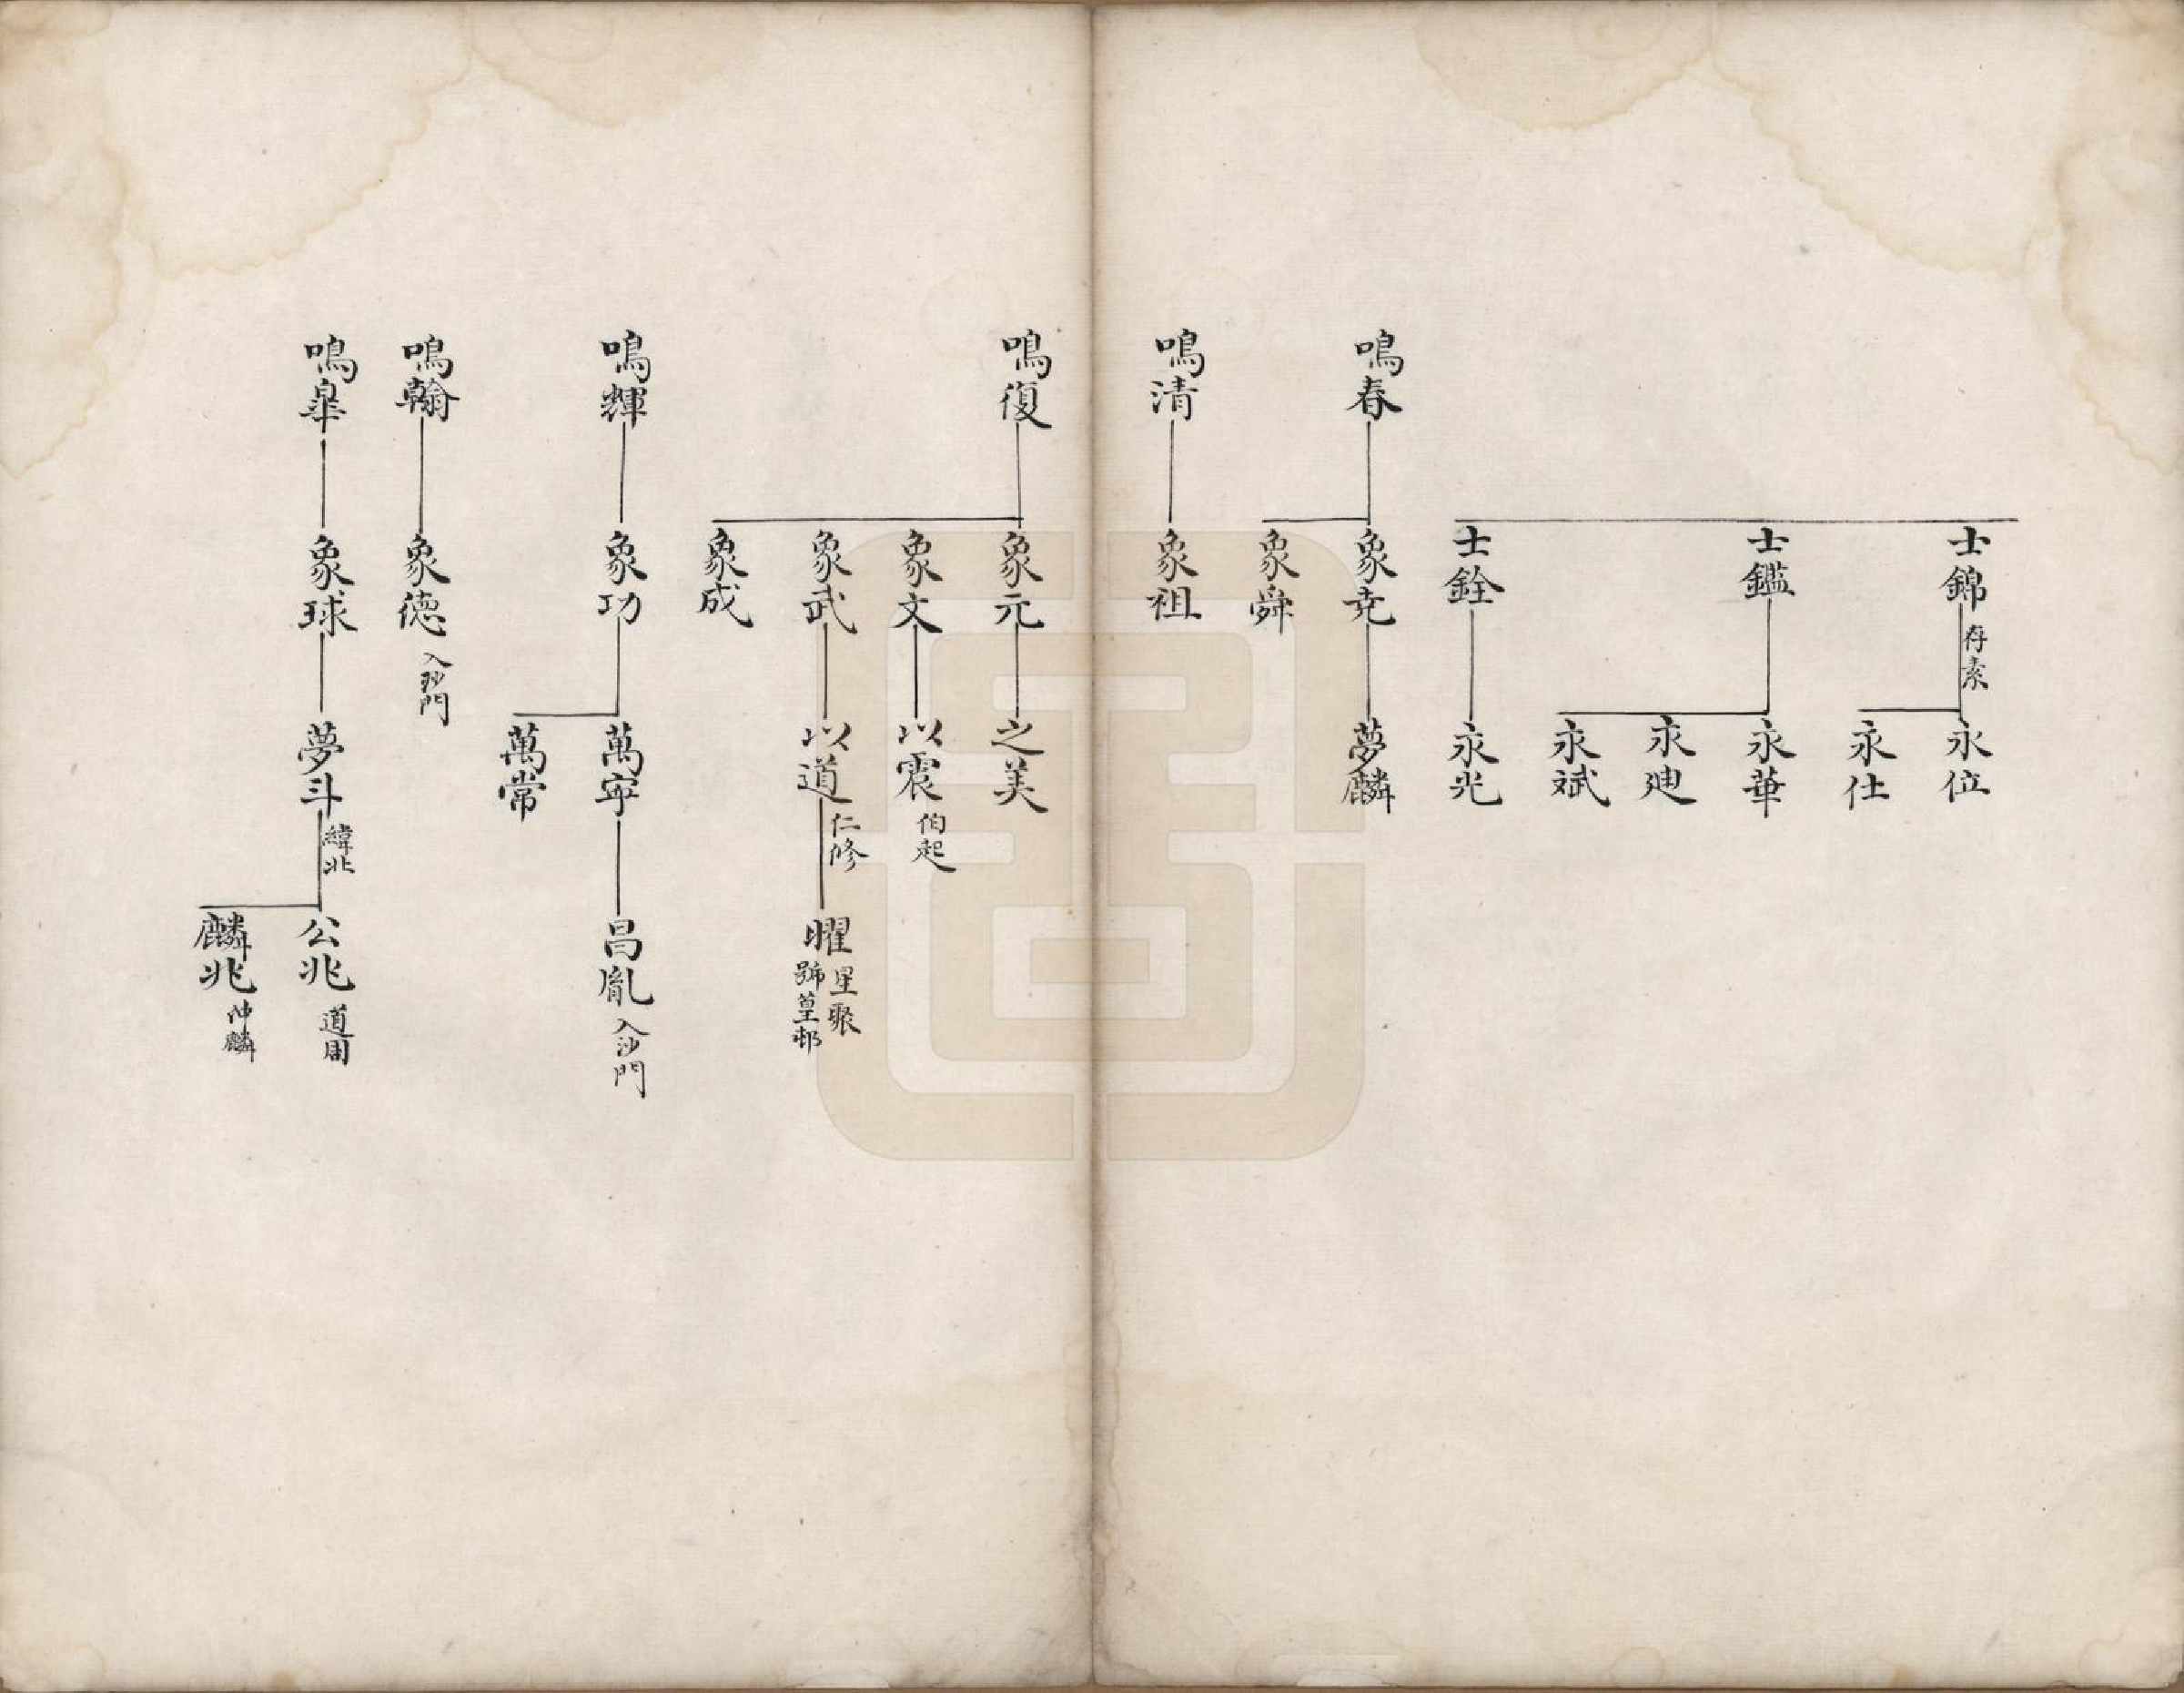 士錦 存素
永位
永仕
士鑑
永華
永迪
永斌
士銓
永光
鳴春
象堯
夢麟
象舜
鳴清
象祖
鳴復
象元
之美
象文
以震 伯起
象武
以道 仁修
曜 星聚
號篁邨
象成
鳴輝
象功
萬寧
昌胤 入沙門
萬常
鳴翰
象德 入沙門
鳴皐
象球
夢斗 緯北
公兆 道周
麟兆 仲麟